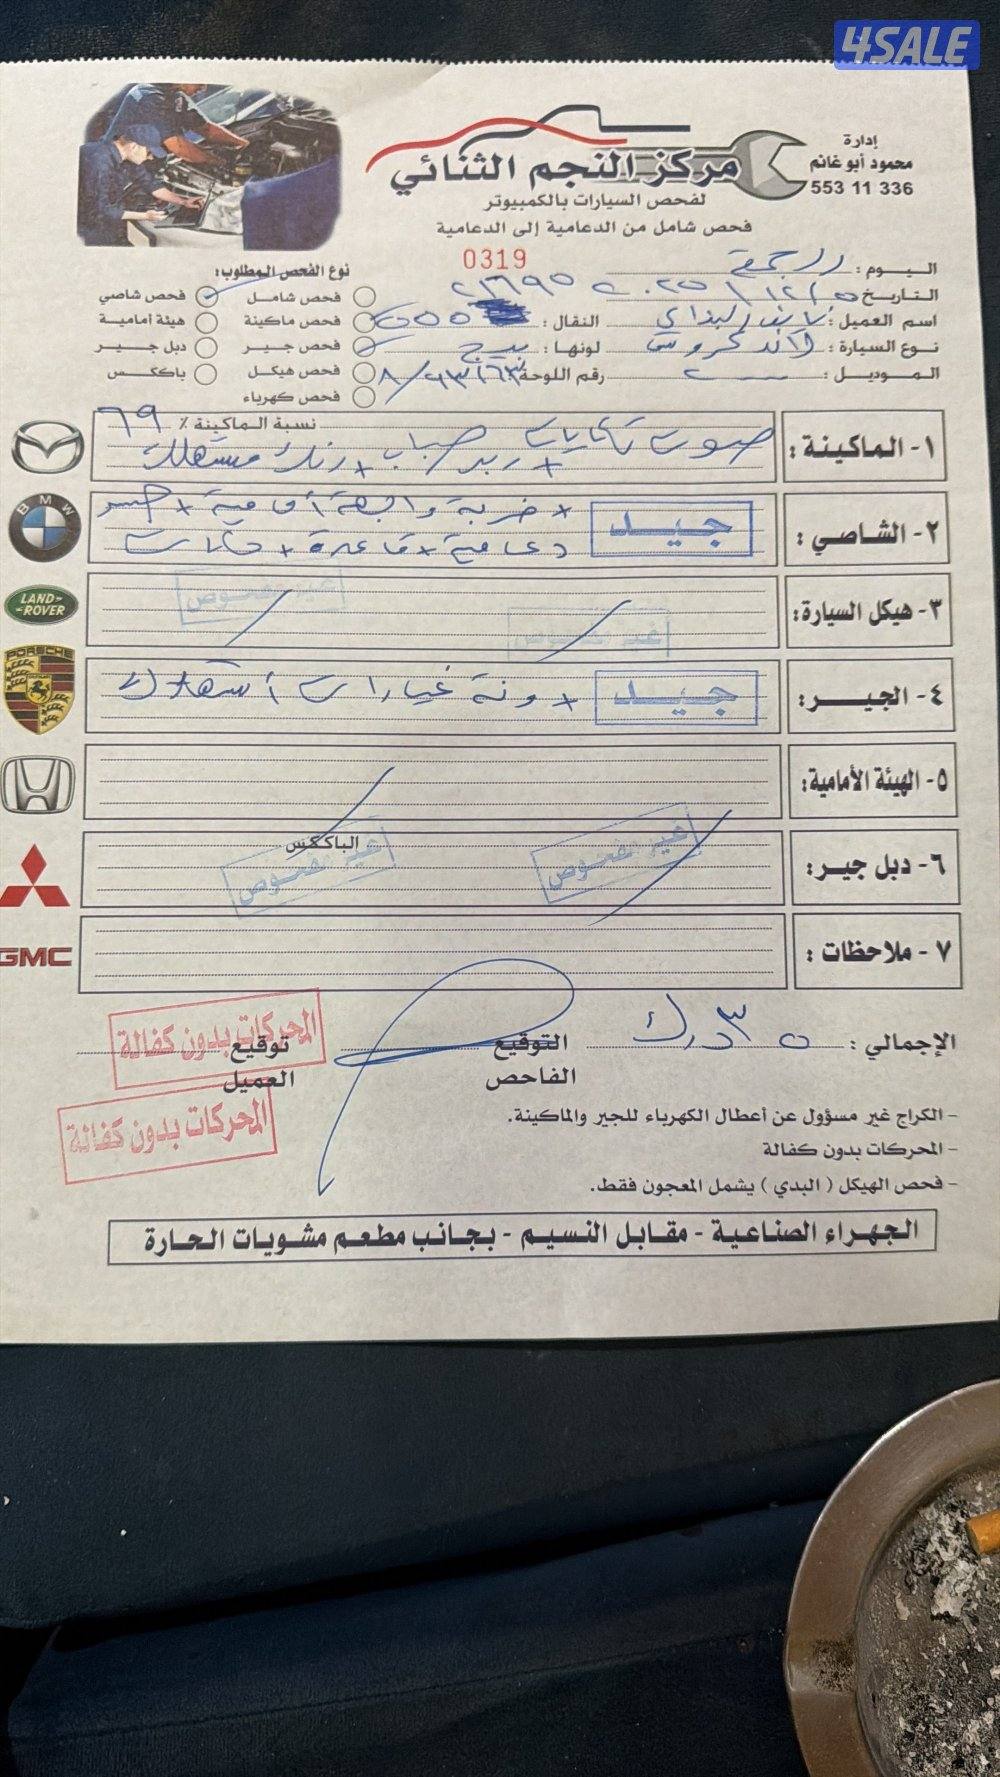 4SALE
إدارة
محمود أبو غانم
553 11 336
مركز النجم الثنائي
لفحص السيارات بالكمبيوتر
فحص شامل من الدعامية إلى الدعامية
0319
اليوم : الجمعة
التاريخ
اسم العميل :
النقال :
نوع السيارة : لاند كروسر
لونها : بيج
الموديل :
رقم اللوحة
نوع الفحص المطلوب :
فحص شامل
فحص شاصي
فحص ماكينة
هيئة أمامية
فحص جير
دبل جير
فحص هيكل
باككس
فحص كهرباء
١- الماكينة :
نسبة الماكينة ٪ ٦٩
صوت تكايات
+ ربر صباب + رنك مستهلك
٢- الشاصي :
جيد
+ ضربة واجهة أمامية + جسر
دعامية + قاعدة +
٣- هيكل السيارة :
غير مفحوص
غير مفحوص
٤- الجير :
جيد
+ ونة غيارات استهلاك
٥- الهيئة الأمامية :
٦- دبل جير :
الباككس
غير مفحوص
غير مفحوص
٧- ملاحظات :
BMW
LAND-ROVER
PORSCHE
GMC
الإجمالي : ٣٥ د.ك
التوقيع
الفاحص
توقيع
العميل
المحركات بدون كفالة
المحركات بدون كفالة
- الكراج غير مسؤول عن أعطال الكهرباء للجير والماكينة.
- المحركات بدون كفالة
- فحص الهيكل ( البدي ) يشمل المعجون فقط.
الجهراء الصناعية - مقابل النسيم - بجانب مطعم مشويات الحارة